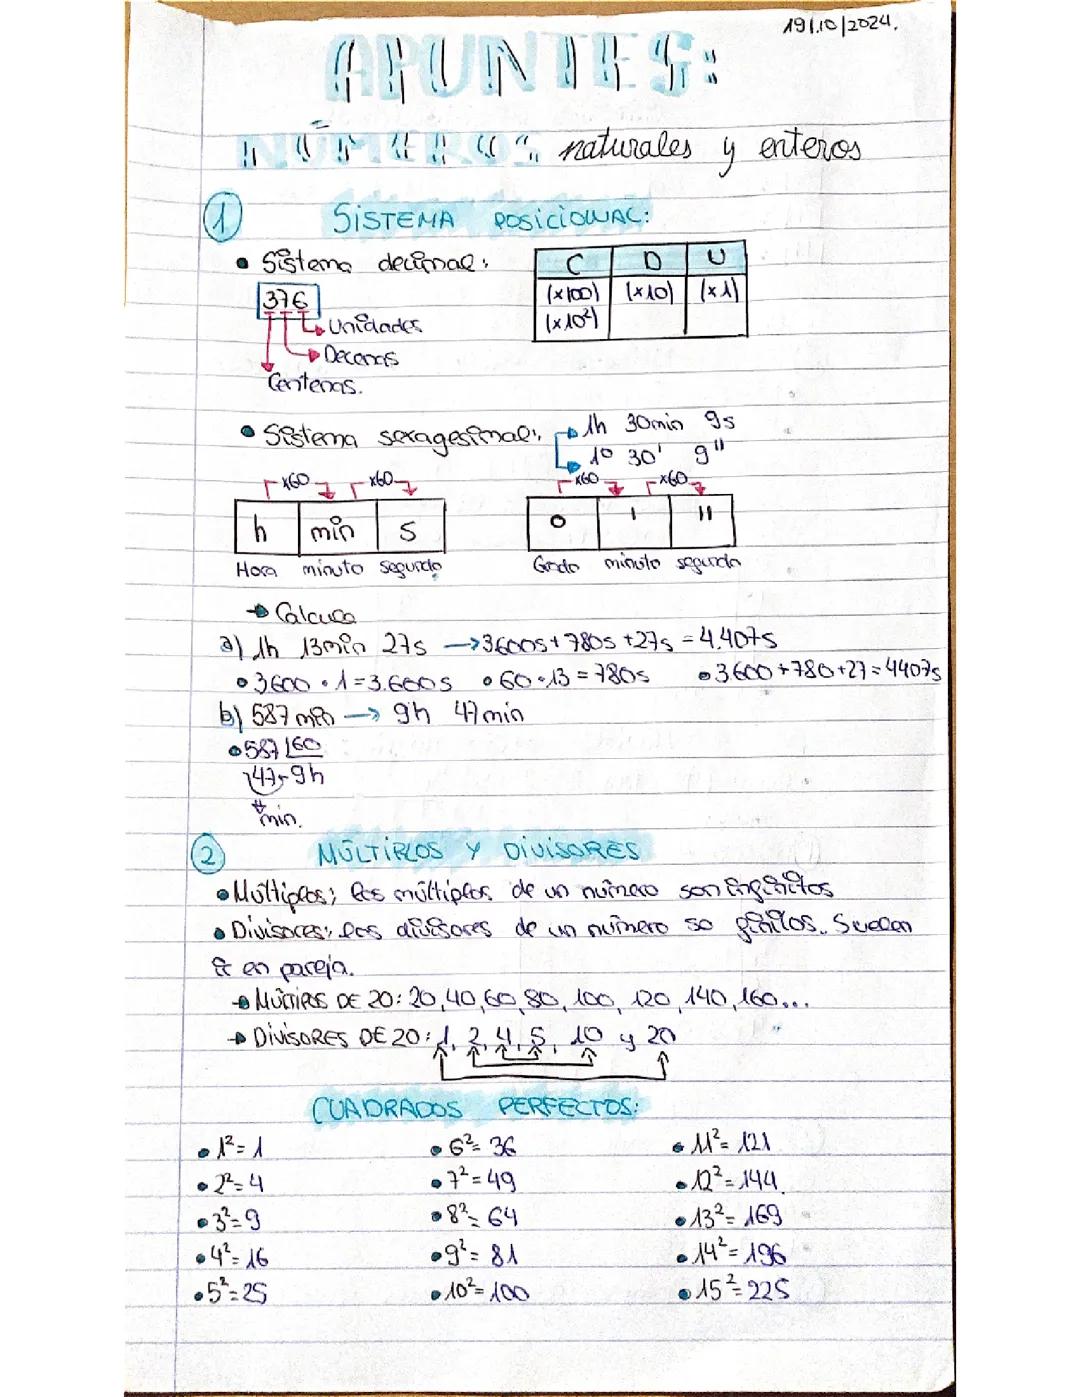 19/10/2024.
APUNTES:
NÚMEROS naturales y enteros
1 SISTEMA POSICIONAL:
• Sistema decimal:
C D U
376
(x100) (x10) (x1)
(x10²)
Unidades
Decenas
Centenas.
• Sistema sexagesimal:
1h 30min 9s
1º 30' 9''
x60 x60 x60 x60
h min s
º ' ''
Hora minuto segundo
Grado minuto segundo
→ Calcula
a) 1h 13min 27s → 3600s + 780s + 27s = 4.407s
• 3600 · 1 = 3.600s • 60 · 13 = 780s • 3.600 + 780 + 27 = 4407s
b) 587 min → 9h 47min
• 587 60
47 9h
min.
2 MÚLTIPLOS Y DIVISORES
• Múltiplos: los múltiplos de un número son infinitos
• Divisores: los divisores de un número so finitos. Suelen
en pareja.
→ MÚLTIPLOS DE 20: 20, 40, 60, 80, 100, 120, 140, 160...
→ DIVISORES DE 20: 1, 2, 4, 5, 10 y 20
CUADRADOS PERFECTOS:
• 1² = 1 • 6² = 36 • 11² = 121
• 2² = 4 • 7² = 49 • 12² = 144
• 3² = 9 • 8² = 64 • 13² = 169
• 4² = 16 • 9² = 81 • 14² = 196
• 5² = 25 • 10² = 100 • 15² = 225